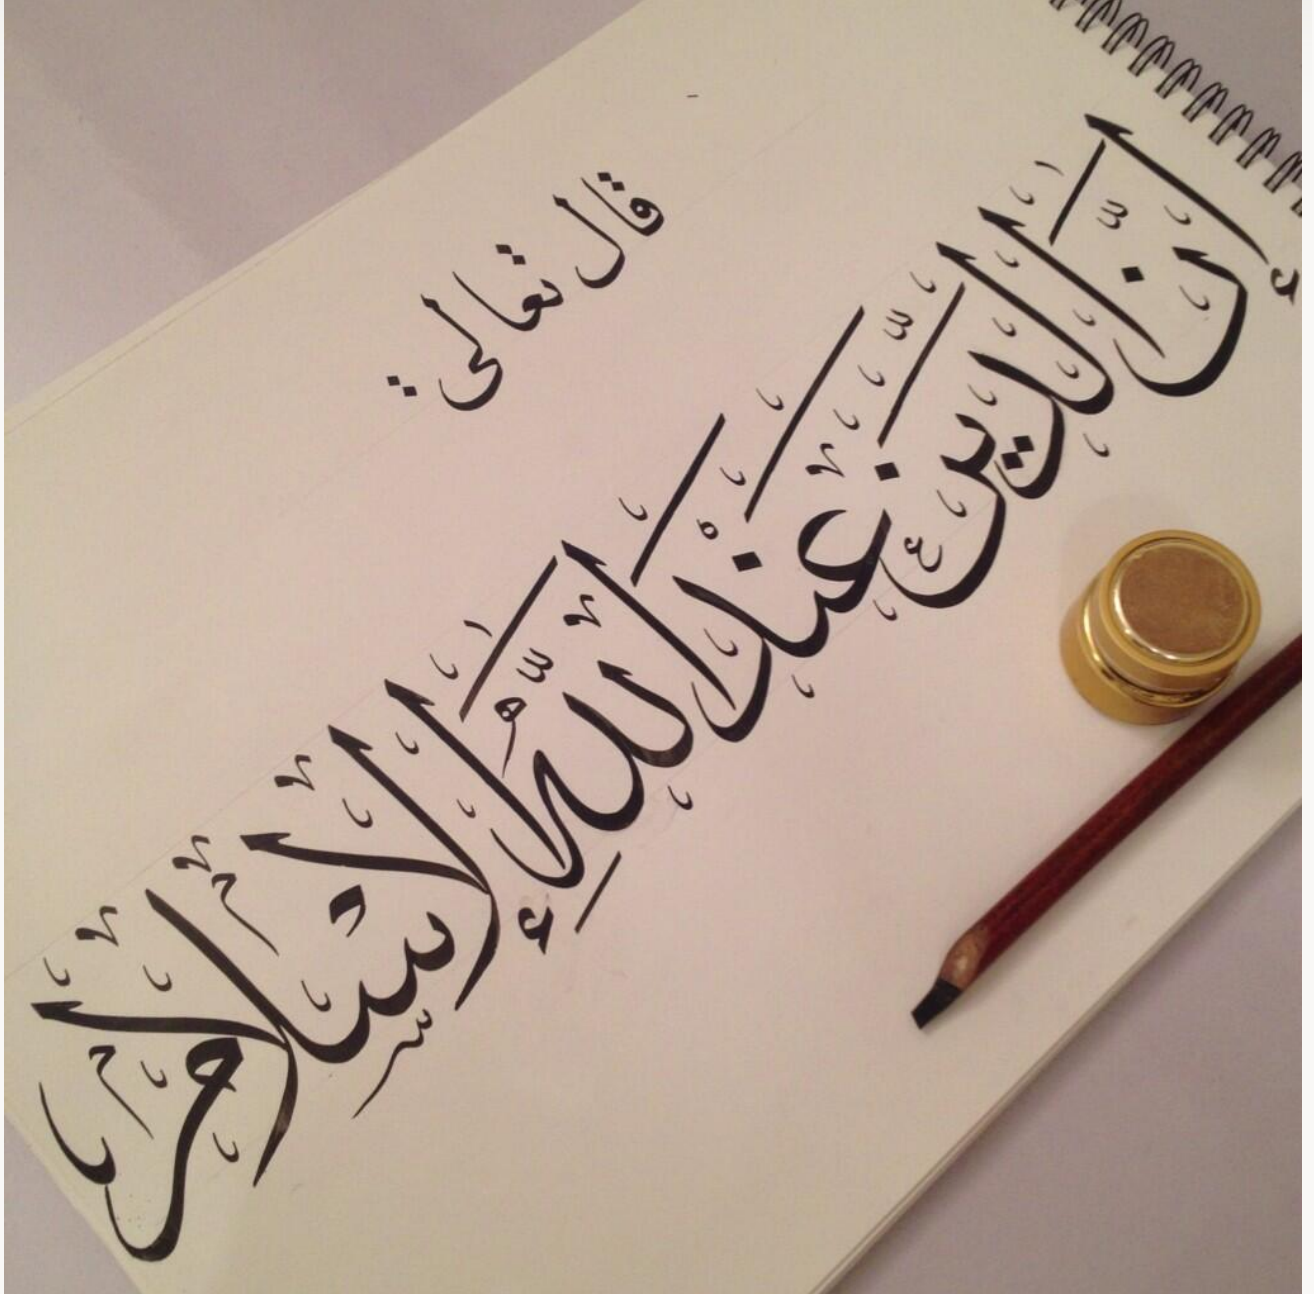 قال تعالى
إنَّ الدين عند الله الإسلام